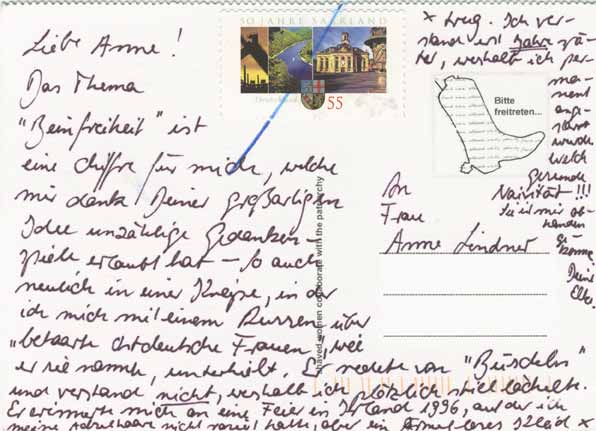 Liebe Anne!
Das Thema
"Beinfreiheit" ist
eine Chiffre für mich, welche
mir dank Deiner großartigen
Idee unzählige Gedanken-
spiele erlaubt hat – so auch
neulich in einer Kneipe, in der
ich mich mit einem Russen über
"behaarte ostdeutsche Frauen", wie
er sie nannte, unterhielt. Er redete von "Büscheln"
und verstand nicht, weshalb ich plötzlich still lächelte.
Er erinnerte mich an eine Feier in Irland 1996, auf der ich
meine Achselhaare nicht rasiert hatte, aber ein ärmelloses Kleid *
* trug. Ich ver-
stand erst Jahre spä-
ter, weshalb ich per-
manent
ange-
starrt
wurde
welch
gesunde
Naivität!!!
Sie ist mir ab-
handen
ge-
komme.
Deine
Elke.
50 JAHRE SAARLAND
Deutschland
55
Bitte
freitreten...
An
Frau
Anne Lindner
shaved women collaborate with the patriarchy